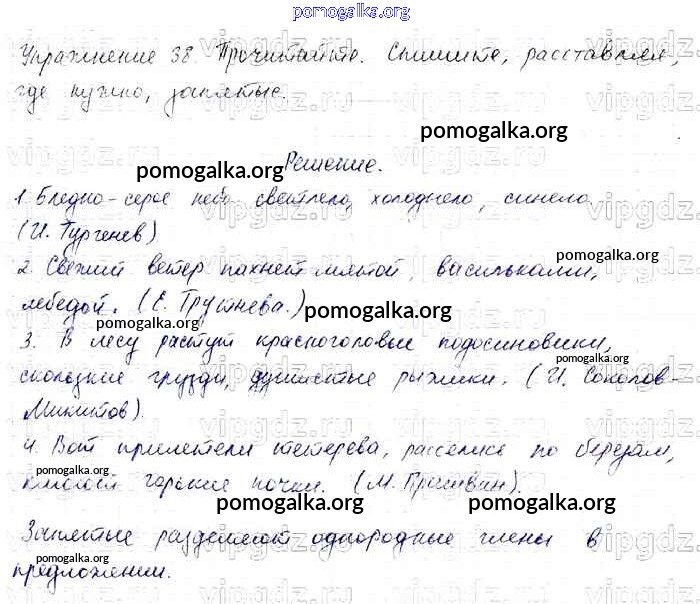 pomogalka.org
Упражнение 38. Прочитайте. Спишите, расставляя,
где нужно, запятые.
pomogalka.org
Решение.
pomogalka.org
1. Бледно-серое небо светлело, холоднело, синело.
(И. Тургенев)
pomogalka.org
2. Свежий ветер пахнет мятой, васильками,
лебедой. (Е. Трутнева.)
pomogalka.org
pomogalka.org
3. В лесу растут красноголовые подосиновики,
pomogalka.org
скользкие грузди, душистые рыжики. (И. Соколов-
Микитов)
4. Вот прилетели тетерева, расселись по березам,
pomogalka.org
клюют горькие почки. (М. Пришвин).
pomogalka.org
pomogalka.org
Запятые разделяют однородные члены в
pomogalka.org
pomogalka.org
предложении.